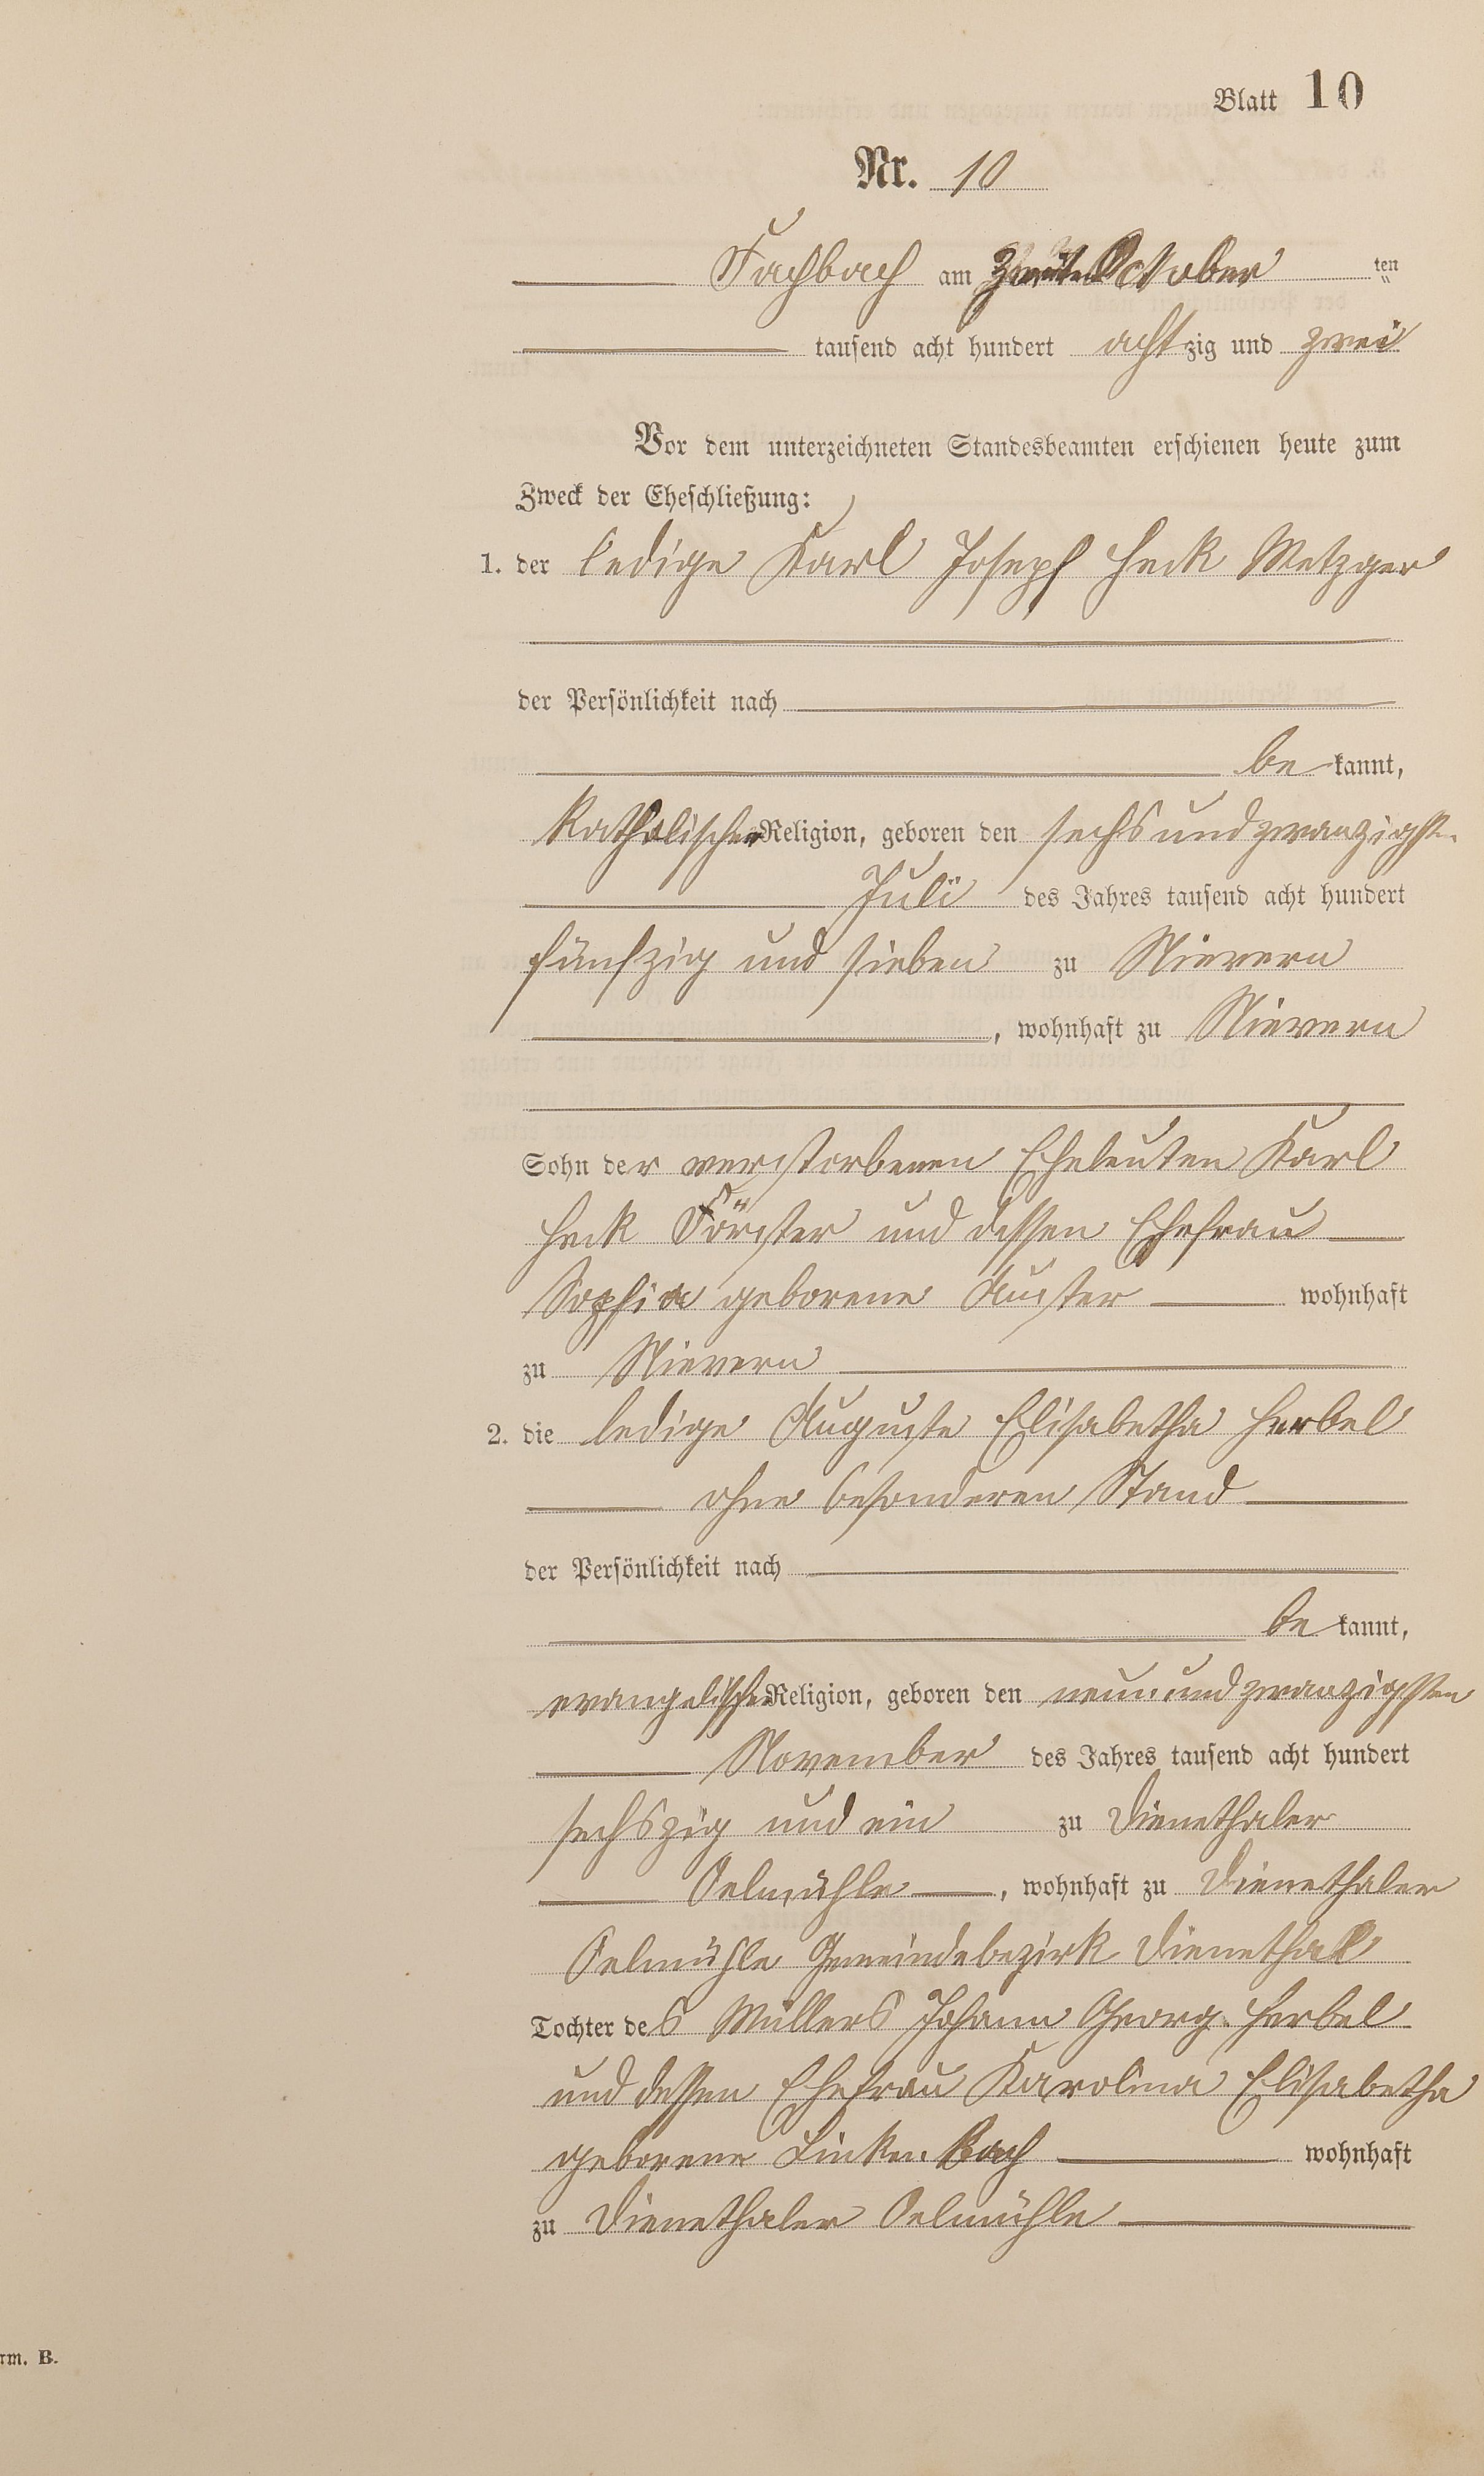 Blatt 10
Nr. 10
Fachbach am Zweiten October ten
tausend acht hundert achtzig und zwei
Vor dem unterzeichneten Standesbeamten erschienen heute zum
Zweck der Eheschließung:
1. der ledige Karl Joseph Heck Metzger
der Persönlichkeit nach
be kannt,
Katholischer Religion, geboren den sechsundzwanzigst.
Juli des Jahres tausend acht hundert
fünfzig und sieben zu Nievern
, wohnhaft zu Nievern
Sohn der verstorbenen Eheleuten Karl
Heck Förster und dessen Ehefrau
Sophia geborene wohnhaft
zu Nievern
2. die ledige Auguste Elisabetha Herbel
ohne besonderen Stand
der Persönlichkeit nach
be kannt,
evangelischer Religion, geboren den neunundzwanzigsten
November des Jahres tausend acht hundert
sechszig und ein zu Dienethaler
Oelmühle, wohnhaft zu Dienethaler
Oelmühle Gemeindebezirk Dienethal
Tochter des Müllers Johann Georg Herbel
und dessen Ehefrau Karolina Elisabetha
geborene Linkenbach wohnhaft
zu Dienethaler Oelmühle
rm. B.